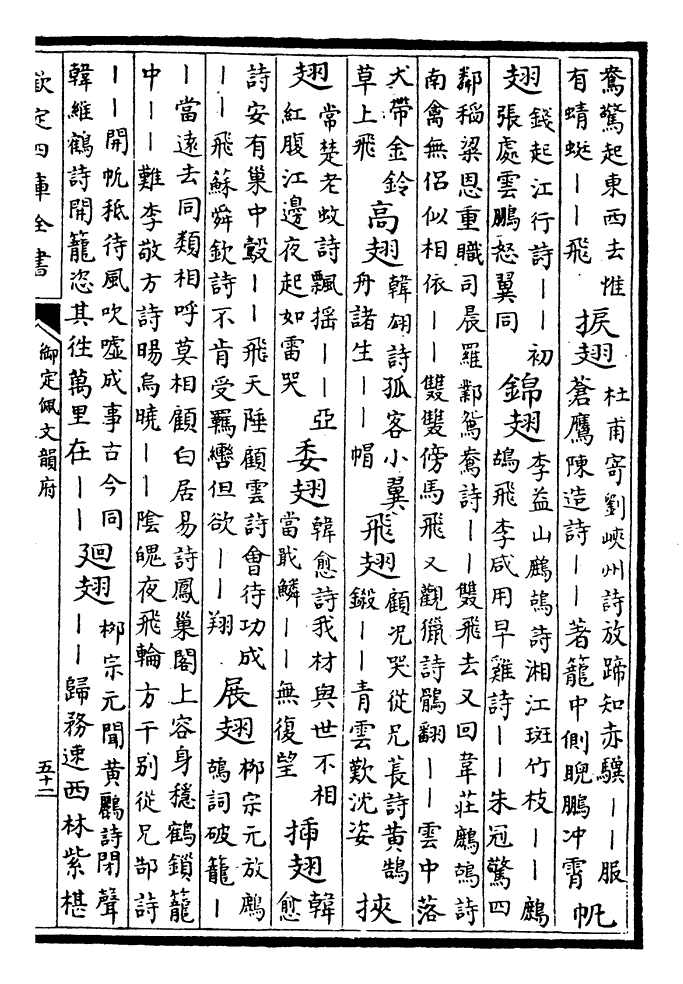 鴦驚起東西去惟
有蜻蜓丨丨飛
捩翅
杜甫寄劉峽州詩放蹄知赤驥丨丨服
蒼鷹陳造詩丨丨著籠中側睨鵬冲霄
帆
翅
錢起江行詩丨丨初
張處雲鵬怒翼同
錦翅
李益山鷓鴣詩湘江斑竹枝丨丨鷓
鴣飛李咸用早雞詩丨丨朱冠驚四
鄰稻梁恩重職司晨羅鄴鴛鴦詩丨丨雙飛去又回韋莊鷓鴣詩
南禽無侶似相依丨丨雙雙傍馬飛又觀獵詩鶻翻丨丨雲中落
犬帶金鈴
草上飛
高翅
韓翃詩孤客小翼
舟諸生丨丨帽
飛翅
顧況哭從兄萇詩黃鵠
鎩丨丨青雲歎沈姿
挾
翅
常楚老蚊詩飄摇丨丨亞
紅腹江邊夜起如雷哭
委翅
韓愈詩我材與世不相
當戢鱗丨丨無復望
插翅
韓
愈
詩安有巢中鷇丨丨飛天陲顧雲詩會待功成
丨丨飛蘇舜欽詩不肯受羈轡但欲丨丨翔
展翅
柳宗元放鷓
鴣詞破籠丨
丨當遠去同類相呼莫相顧白居易詩鳳巢閣上容身穩鶴鎖籠
中丨丨難李敬方詩暘烏曉丨丨陰魄夜飛輪方干別從兄郜詩
丨丨開帆秪待風吹噓成事古今同
韓維鶴詩開籠恣其徃萬里在丨丨
廻翅
柳宗元聞黃鸝詩閉聲
丨丨歸務速西林紫椹
欽定四庫全書
御定佩文韻府
五十二